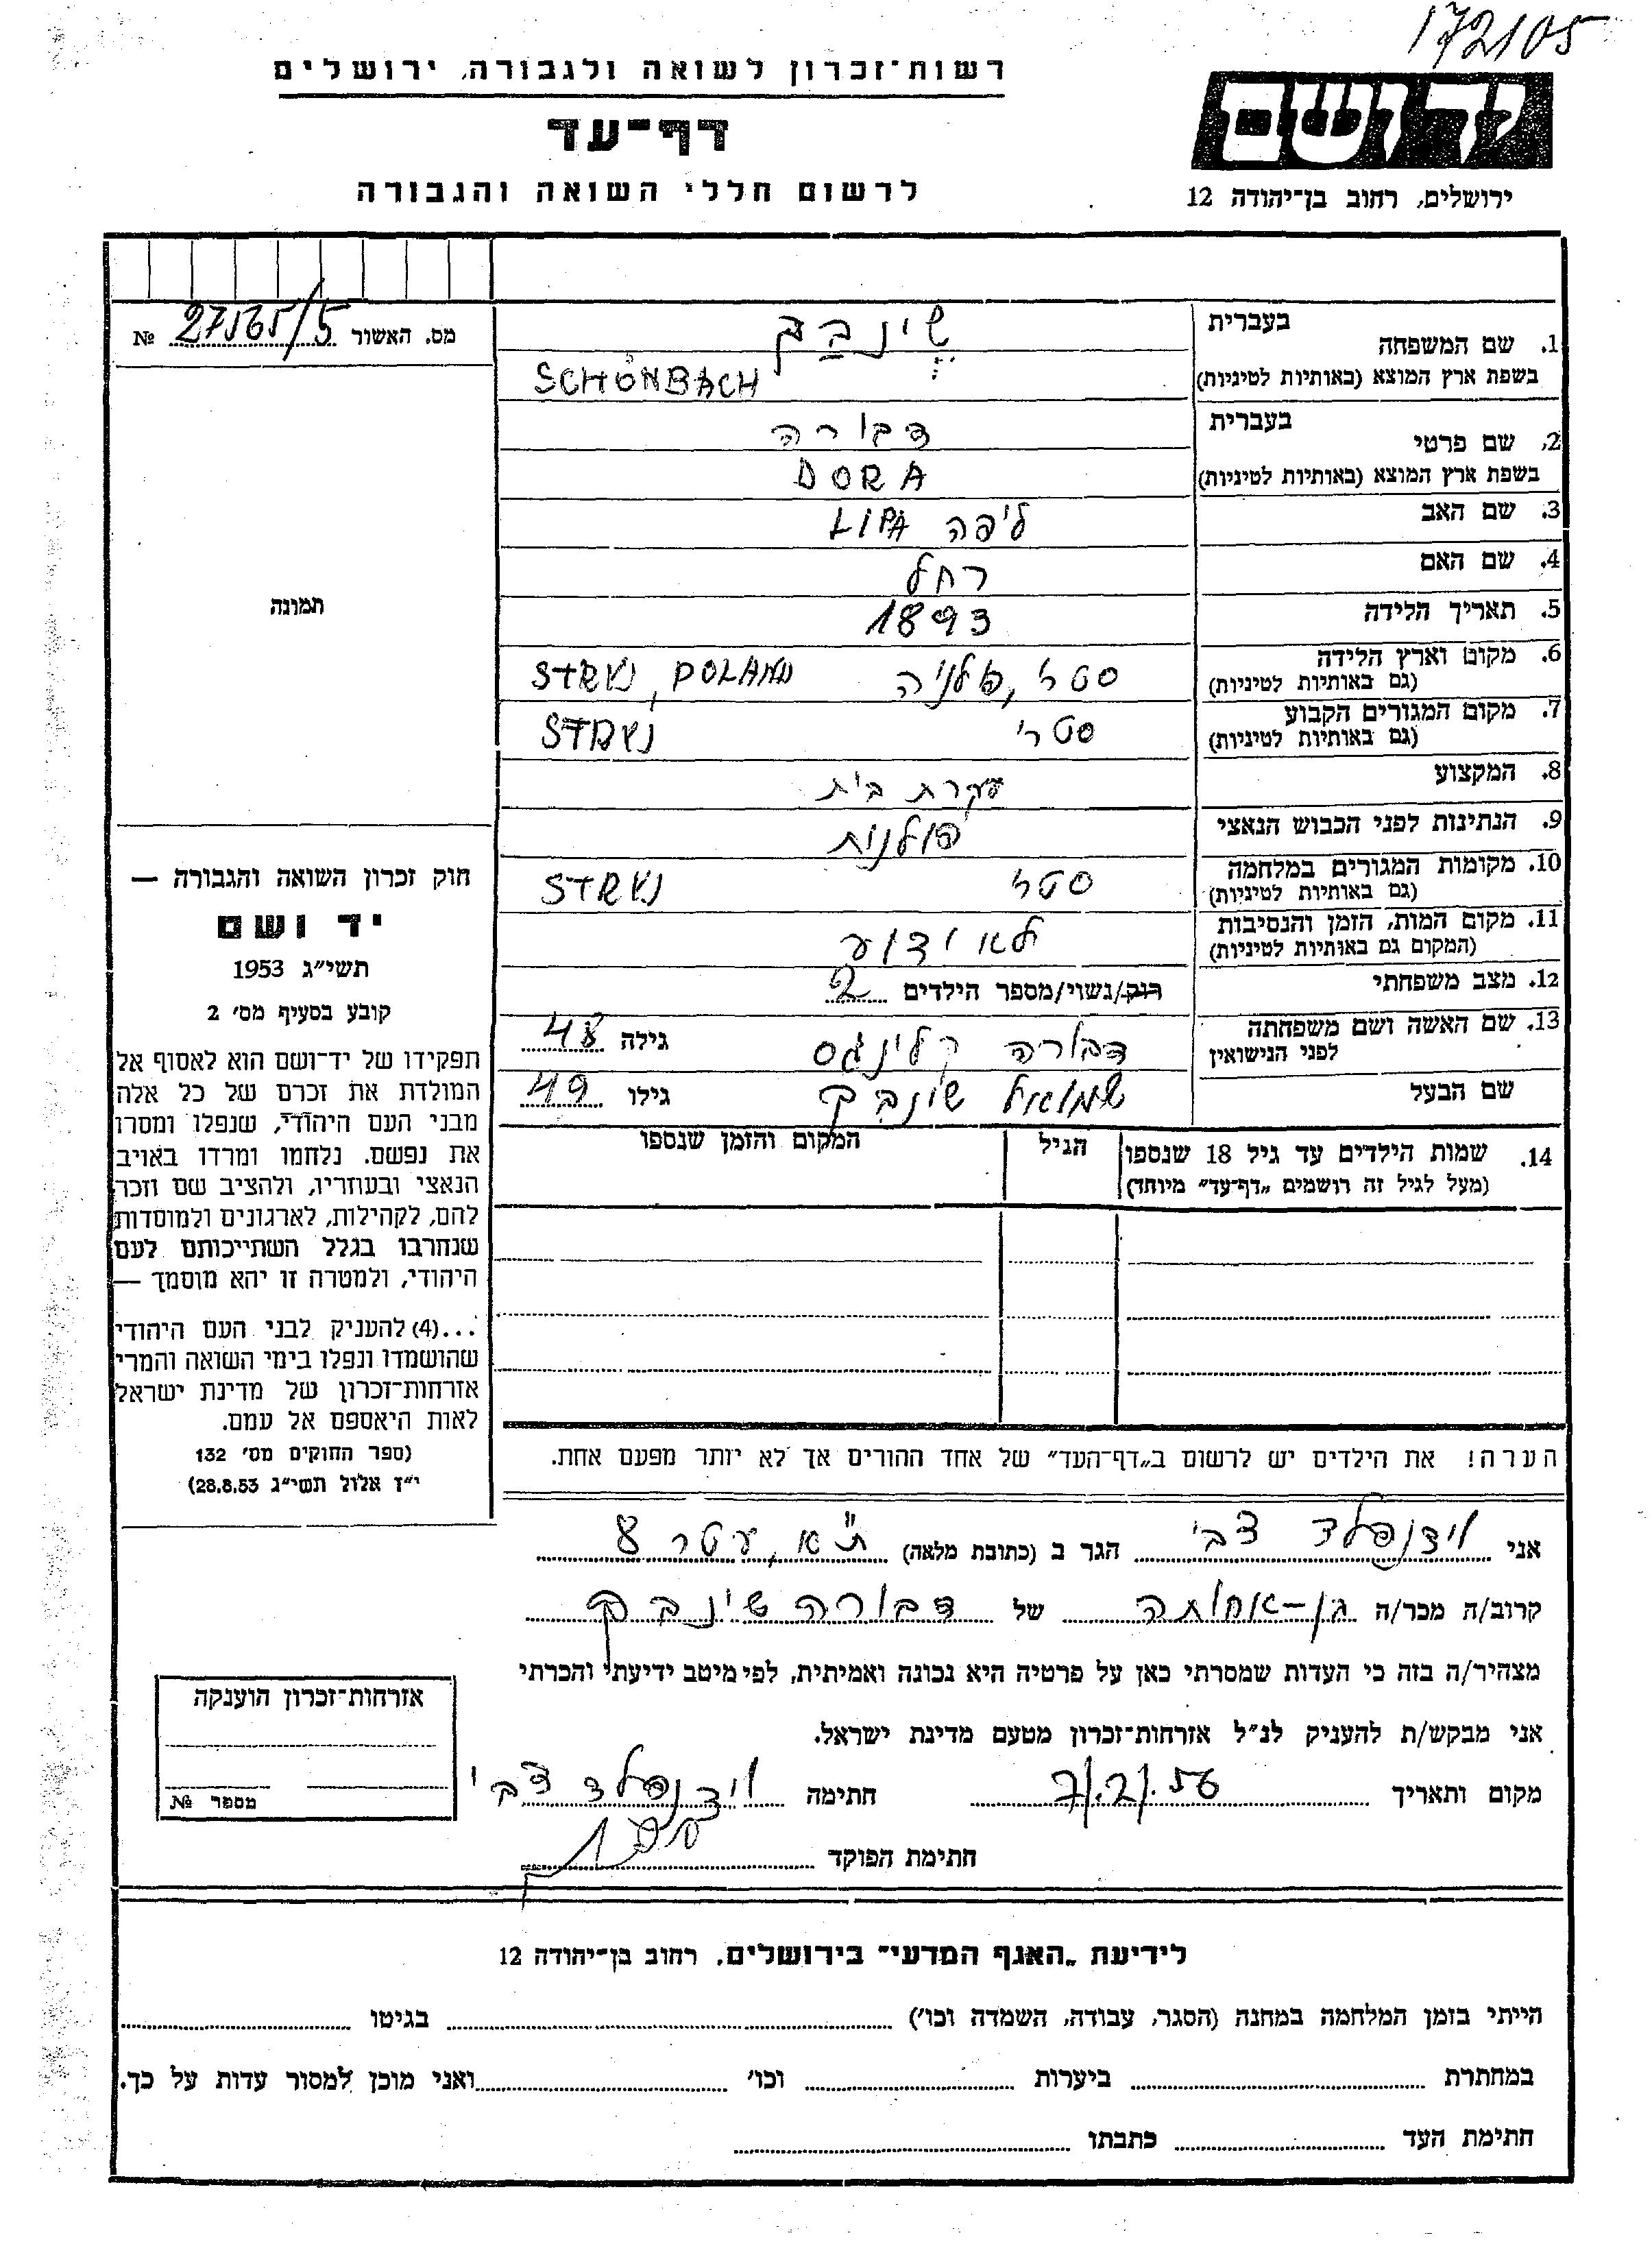 172105
רשות־זכרון לשואה ולגבורה, ירושלים
יד ושם
דף־עד
ירושלים, רחוב בן־יהודה 12
לרשום חללי השואה והגבורה
מס. האשור 27565/5 №
1. שם המשפחה בעברית שינבך
בשפת ארץ המוצא (באותיות לטיניות) SCHÖNBACH
2. שם פרטי בעברית דבורה
בשפת ארץ המוצא (באותיות לטיניות) DORA
3. שם האב ליפה LIPA
4. שם האם רחל
5. תאריך הלידה 1893
6. מקום וארץ הלידה (גם באותיות לטיניות) סטרי, פולניה STRYJ, POLAND
7. מקום המגורים הקבוע (גם באותיות לטיניות) סטרי STRYJ
8. המקצוע עקרת בית
9. הנתינות לפני הכבוש הנאצי פולנית
10. מקומות המגורים במלחמה (גם באותיות לטיניות) סטרי STRYJ
11. מקום המות, הזמן והנסיבות (המקום גם באותיות לטיניות) לא ידוע
12. מצב משפחתי רוק/נשוי/מספר הילדים 2
13. שם האשה ושם משפחתה לפני הנישואין דבורה קלינגס גילה 48
שם הבעל שמואל שינבך גילו 49
14. שמות הילדים עד גיל 18 שנספו הגיל המקום והזמן שנספו
(מעל לגיל זה רושמים „דף־עד" מיוחד)
תמונה
חוק זכרון השואה והגבורה —
יד ושם
תשי״ג 1953
קובע בסעיף מס׳ 2
תפקידו של יד־ושם הוא לאסוף אל
המולדת את זכרם של כל אלה
מבני העם היהודי, שנפלו ומסרו
את נפשם. נלחמו ומרדו באויב
הנאצי ובעוזריו, ולהציב שם וזכר
להם, לקהילות, לארגונים ולמוסדות
שנחרבו בגלל השתייכותם לעם
היהודי, ולמטרה זו יהא מוסמך —
...(4) להעניק לבני העם היהודי
שהושמדו ונפלו בימי השואה והמרי
אזרחות־זכרון של מדינת ישראל
לאות היאספם אל עמם.
(ספר החוקים מס׳ 132
י״ז אלול תשי״ג 28.8.53)
הערה! את הילדים יש לרשום ב„דף־העד" של אחד ההורים אך לא יותר מפעם אחת.
אני וידנפלד צבי הגר ב (כתובת מלאה) ת"א, עטר 8
קרוב/ה מכר/ה בן-אחותה של דבורה שינבך
מצהיר/ה בזה כי העדות שמסרתי כאן על פרטיה היא נכונה ואמיתית, לפי מיטב ידיעתי והכרתי
אני מבקש/ת להעניק לנ״ל אזרחות־זכרון מטעם מדינת ישראל.
מקום ותאריך 7/.2/.56 חתימה וידנפלד צבי
חתימת הפוקד
אזרחות־זכרון הוענקה
מספר №
לידיעת „האגף המדעי" בירושלים, רחוב בן־יהודה 12
הייתי בזמן המלחמה במחנה (הסגר, עבודה, השמדה וכו׳) בגיטו
במחתרת ביערות וכו׳ ואני מוכן למסור עדות על כך.
חתימת העד כתבתו